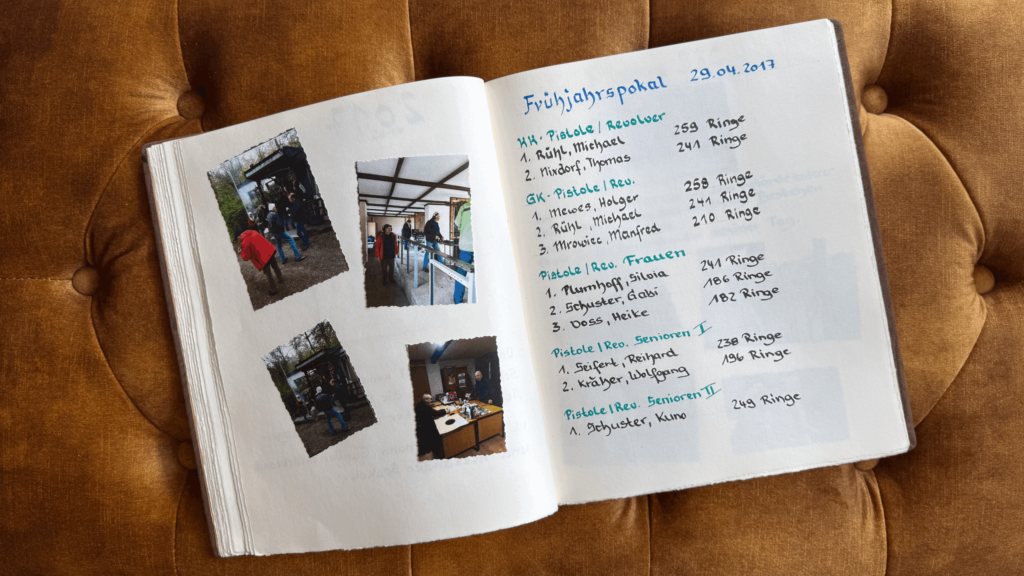 Frühjahrspokal 29.04.2017
KK-Pistole/Revolver
1. Rühl, Michael 259 Ringe
2. Nixdorf, Thomas 241 Ringe
GK-Pistole/Rev.
1. Mewes, Holger 258 Ringe
2. Rühl, Michael 241 Ringe
3. Mrowiec, Manfred 210 Ringe
Pistole/Rev. Frauen
1. Plumhoff, Silvia 241 Ringe
2. Schuster, Gabi 186 Ringe
3. Voss, Heike 182 Ringe
Pistole/Rev. Senioren I
1. Seifert, Reihard 238 Ringe
2. Kräher, Wolfgang 196 Ringe
Pistole/Rev. Senioren II
1. Schuster, Kuno 249 Ringe